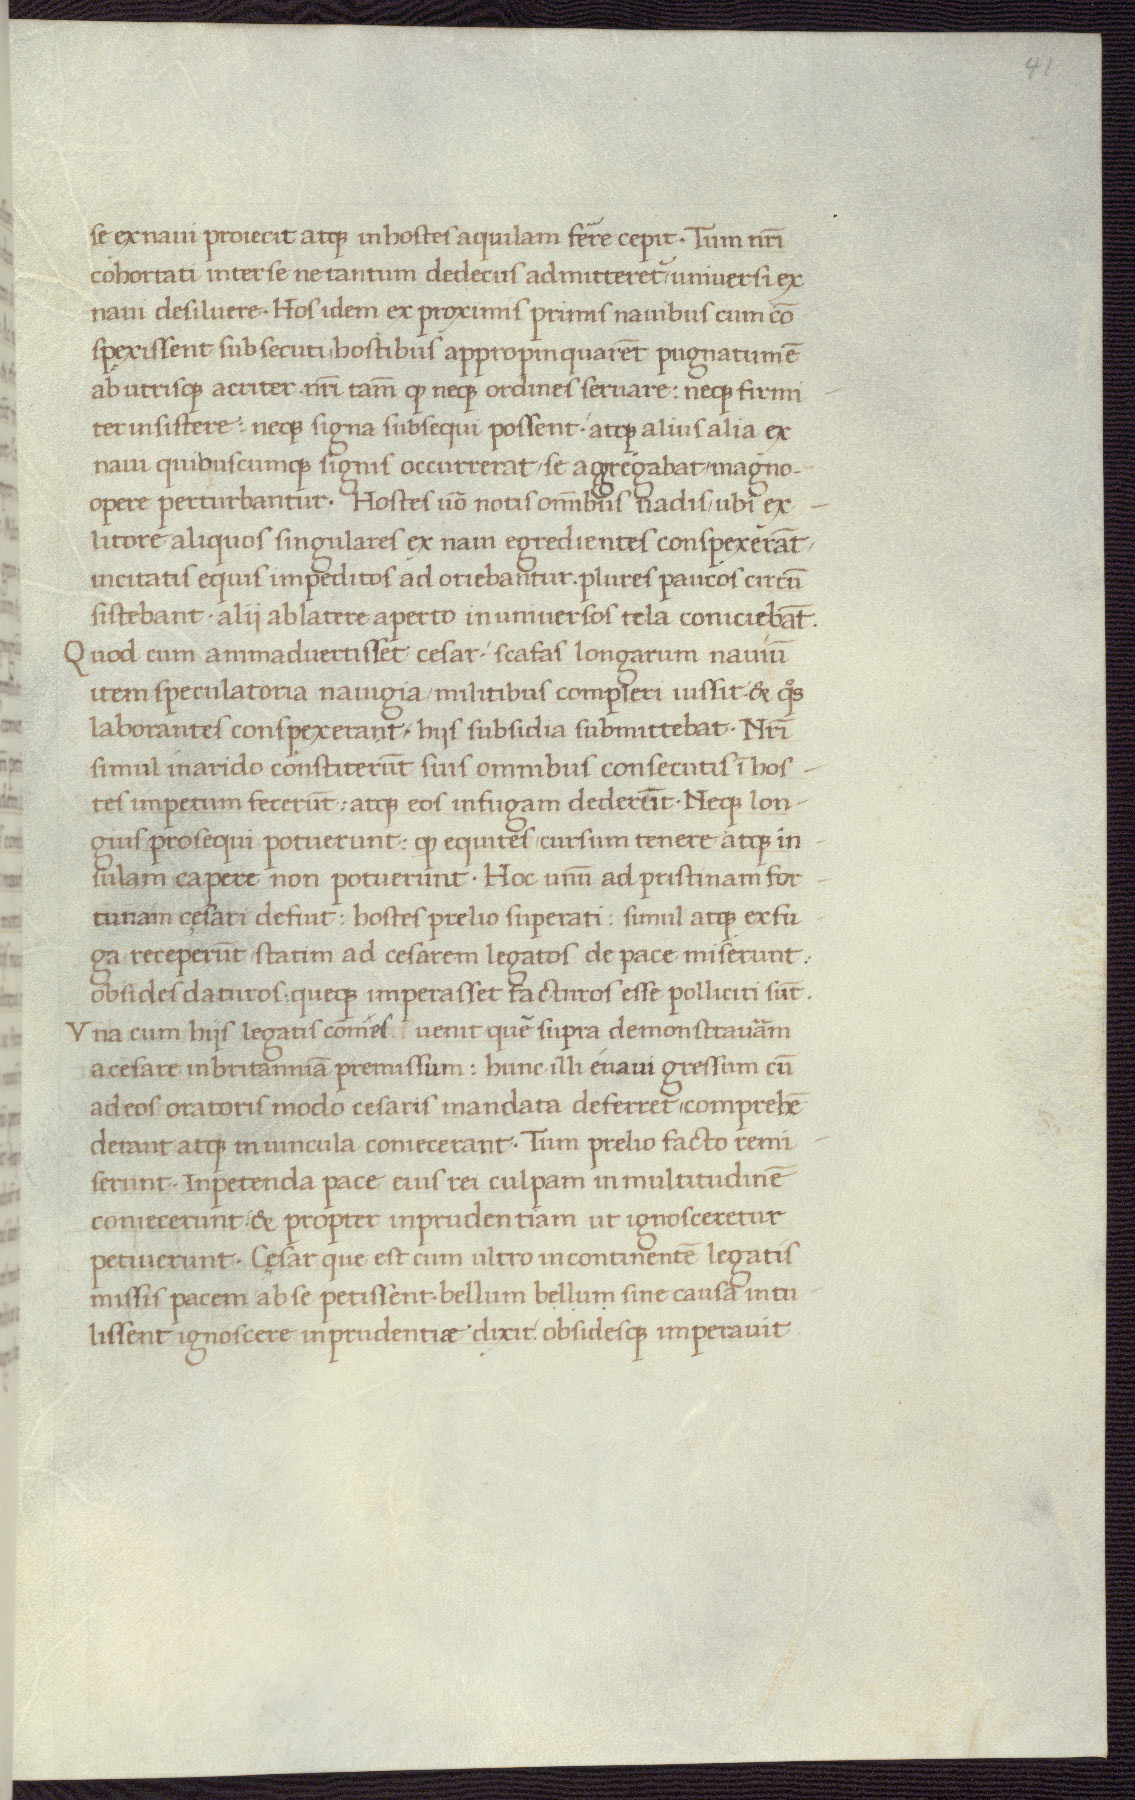 41
se ex naui proiecit atq; in hostes aquilam ferre cepit. Tum nr̃i
cohortati inter se ne tantum dedecus admitteret᷑ / uniuersi ex
naui desiluere. Hos idem ex proximis primis nauibus cum cō
spexissent subsecuti / hostibus appropinquarēt pugnatum ē
ab utrisq; acriter. nr̃i tam̄ q neq; ordines seruare: neq; firmi -
ter insistere: neq; signa subsequi possent. atq; alius alia ex
naui quibuscumq; signis occurrerat / se agregabat / magno-
opere perturbantur. Hostes uō notis om̄ibus uadis / ubi ex -
litore aliquos singulares ex naui egredientes conspexerāt /
incitatis equis impeditos ad oriebantur. plures paucos circū
sistebant. alij ab latere aperto in uniuersos tela coniciebāt.
Quod cum animaduertisset cesar / scafas longarum nauiū
item speculatoria nauigia / militibus compleri iussit. & qos
laborantes conspexerant / hijs subsidia submittebat. Nr̃i
simul in arido constiterūt suis omnibus consecutis ī hos -
tes impetum fecerūt: atq; eos in fugam dederūt. Neq; lon -
gius prosequi potuerunt: q equites / cursum tenere atq; in -
sulam capere non potuerunt. Hoc unū ad pristinam for -
tunam cęsari defiut: hostes prelio superati: simul atq; ex fu -
ga receperūt / statim ad cesarem legatos de pace miserunt.
obsides daturos: queq; imperasset facturos esse polliciti sūt.
Vna cum hijs legatis comes uenit quē supra demonstrauā̃m
a cesare in britanniā premissum: hunc illi e naui gressum cū
ad eos oratoris modo cesaris mandata deferret / comprehē
derant atq; in uincula coniecerant. Tum prelio facto remi -
serunt. In petenda pace eius rei culpam in multitudinē
coniecerunt. & propter inprudentiam ut ignosceretur
petiuerunt. Cęsar que est cum ultro in continentē legatis
missis pacem ab se petissent. bellum bellum sine causa intu -
lissent ignoscere inprudentiæ dixit. obsidesq; imperauit